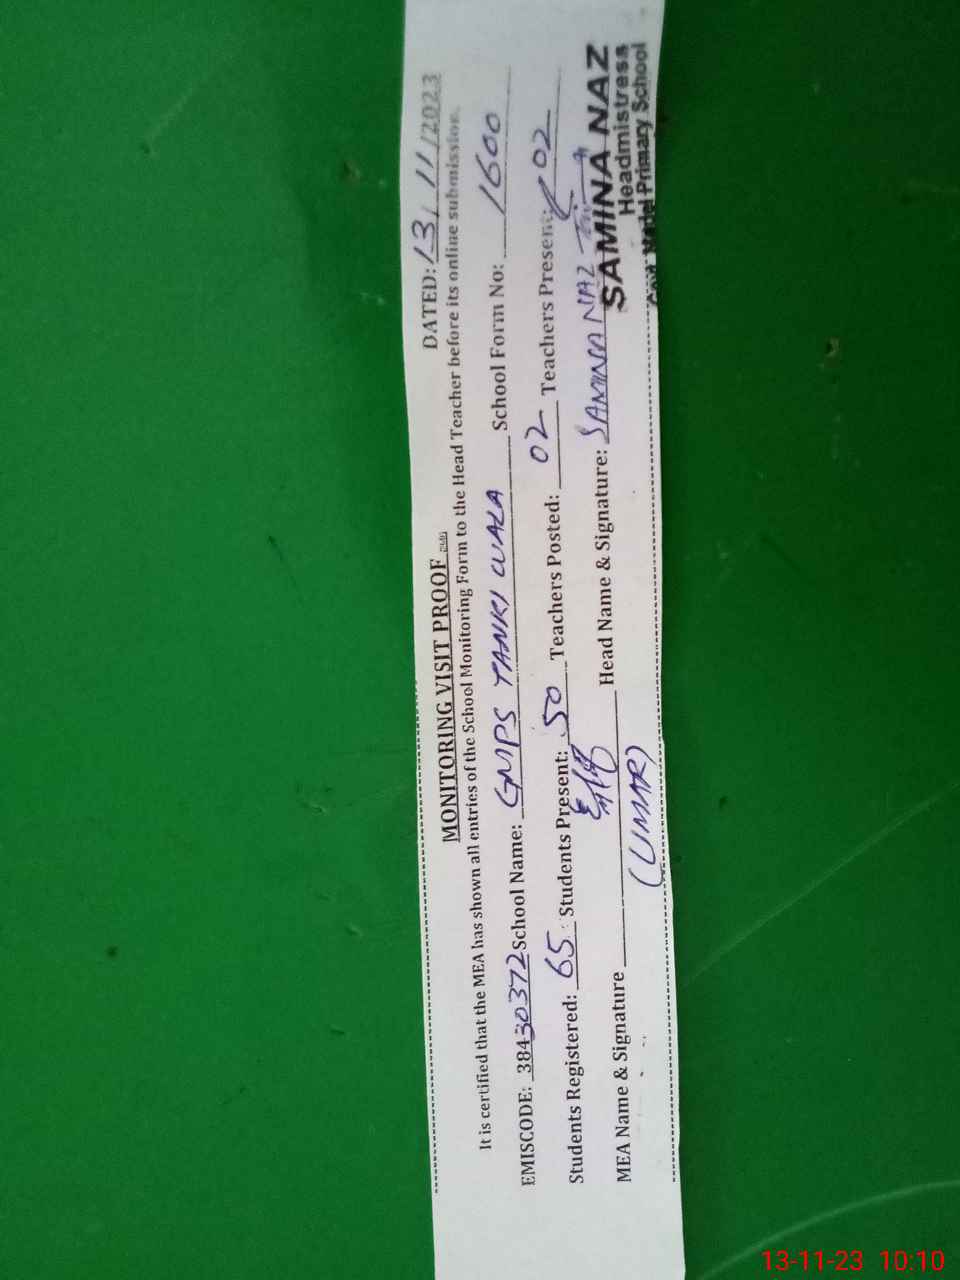 MONITORING VISIT PROOF
DATED: 13/11/2023
It is certified that the MEA has shown all entries of the School Monitoring Form to the Head Teacher before its online submission.
EMISCODE: 38430372 School Name: GMPS TANKI WALA School Form No: 1600
Students Registered: 65 Students Present: 50 Teachers Posted: 02 Teachers Present: 02
MEA Name & Signature (UMAR) Head Name & Signature: SAMINA NAZ
SAMINA NAZ
Headmistress
Govt. Model Primary School
13-11-23 10:10